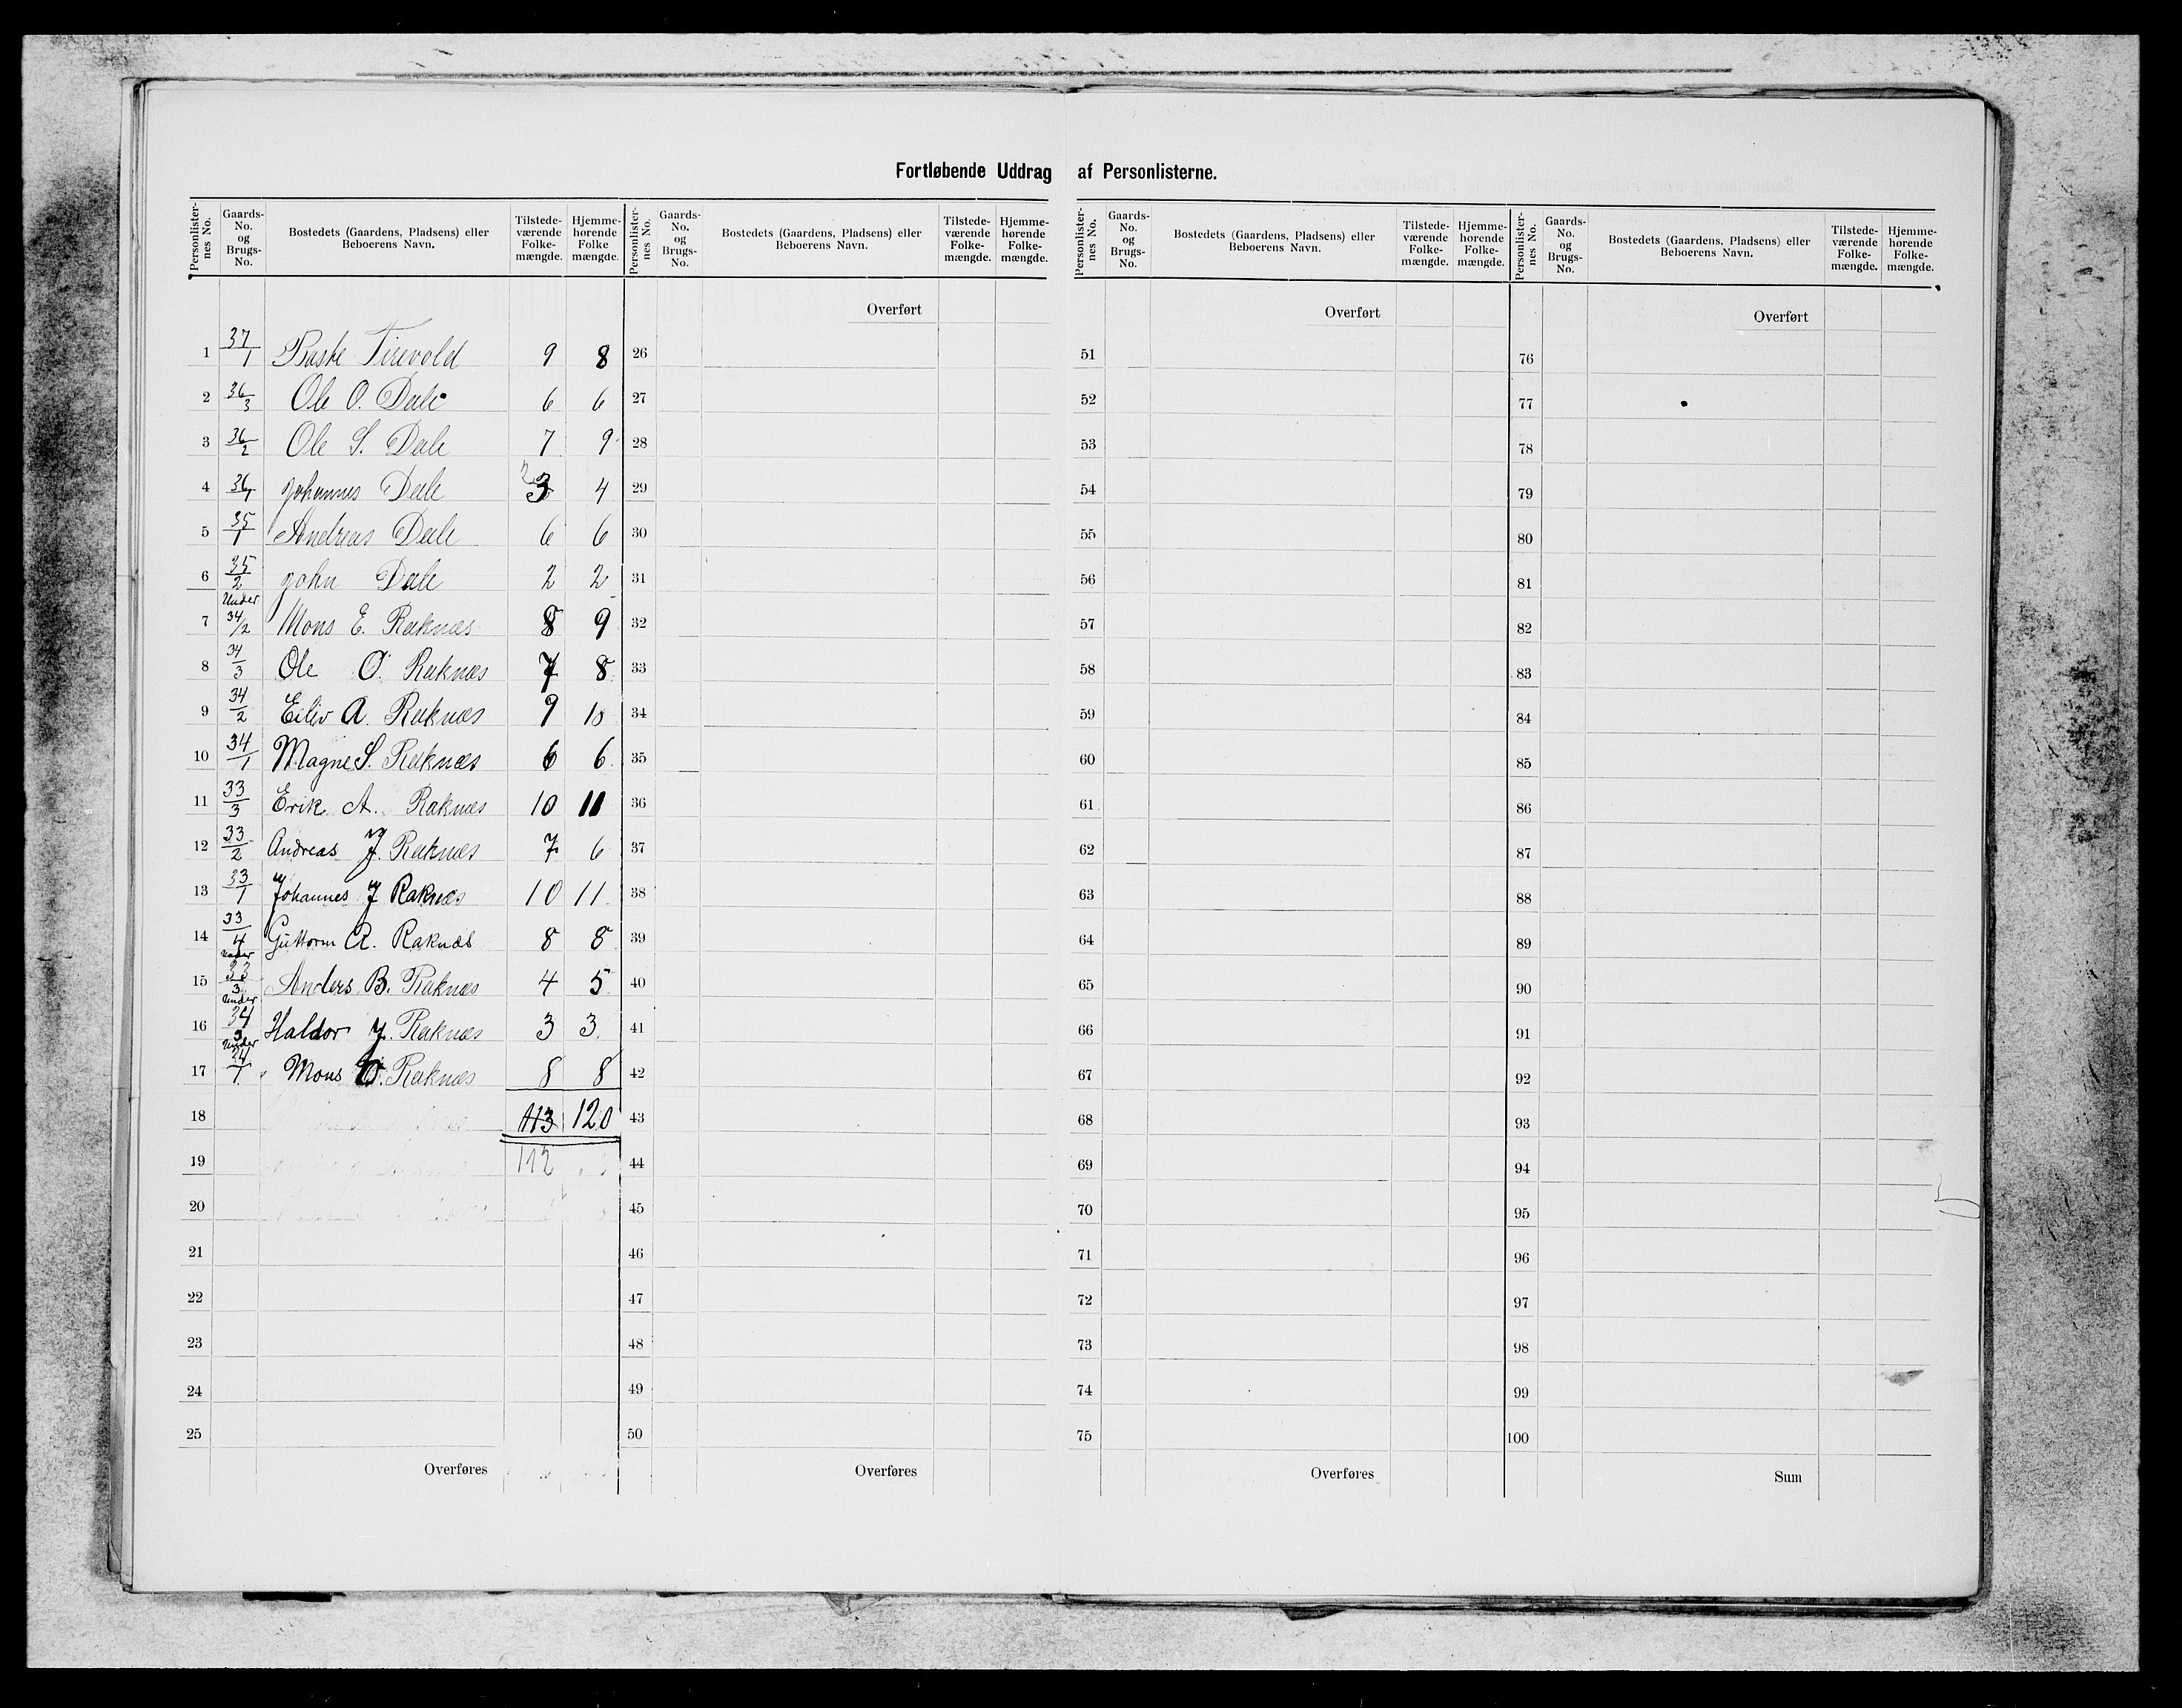 Fortløbende Uddrag af Personlisterne.
Personlister-nes No. | Gaards-No. og Brugs-No. | Bostedets (Gaardens, Pladsens) eller Beboerens Navn. | Tilstede-værende Folke-mængde. | Hjemme-hørende Folke mængde.
Personlister-nes No. | Gaards-No. og Brugs-No. | Bostedets (Gaardens, Pladsens) eller Beboerens Navn. | Tilstede-værende Folke-mængde. | Hjemme-hørende Folke-mængde.
Personlister-nes No. | Gaards-No. og Brugs-No. | Bostedets (Gaardens, Pladsens) eller Beboerens Navn. | Tilstede-værende Folke-mængde. | Hjemme-hørende Folke-mængde.
Personlister-nes No. | Gaards-No. og Brugs-No. | Bostedets (Gaardens, Pladsens) eller Beboerens Navn. | Tilstede-værende Folke-mængde. | Hjemme-hørende Folke-mængde.
1 37/1 Tirevold 9 8
2 36/3 Ole O. Dale 6 6
3 36/2 Ole S. Dale 7 9
4 36/1 Johannes Dale 3 4
5 35/1 Andreas Dale 6 6
6 35/2 John Dale 2 2
7 Under 34/2 Mons E. Raknæs 8 9
8 34/3 Ole O. Raknæs 7 8
9 34/2 Eiliv A. Raknæs 9 10
10 34/1 Magne S. Raknæs 6 6
11 33/3 Erik A. Raknæs 10 11
12 33/2 Andreas J. Raknæs 7 6
13 33/1 Johannes J Raknæs 10 11
14 33/4 Guttorm A. Raknæs 8 8
15 Under 33/3 Anders B. Raknæs 4 5
16 Under 34/3 Haldor J. Raknæs 3 3
17 Under 34/1 Mons O. Raknæs 8 8
18 113 120
19 112
20
21
22
23
24
25
Overføres
Overført
26
27
28
29
30
31
32
33
34
35
36
37
38
39
40
41
42
43
44
45
46
47
48
49
50
Overføres
Overført
51
52
53
54
55
56
57
58
59
60
61
62
63
64
65
66
67
68
69
70
71
72
73
74
75
Overføres
Overført
76
77
78
79
80
81
82
83
84
85
86
87
88
89
90
91
92
93
94
95
96
97
98
99
100
Sum